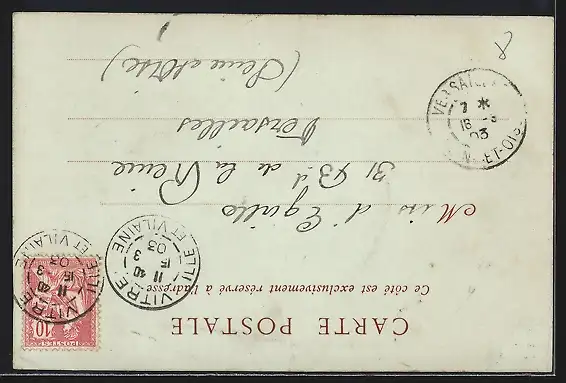 CARTE POSTALE
Ce côté est exclusivement réservé à l'adresse
Miss d'Egville
31 Bd de la Reine
Versailles
(Seine et Oise)
VITRÉ
11 40
15 3
03
ILLE ET VILAINE
VITRÉ
11 40
15 3
03
ILLE ET VILAINE
10
VERSAILLES
7 *
16 -3
03
ET-OISE
8